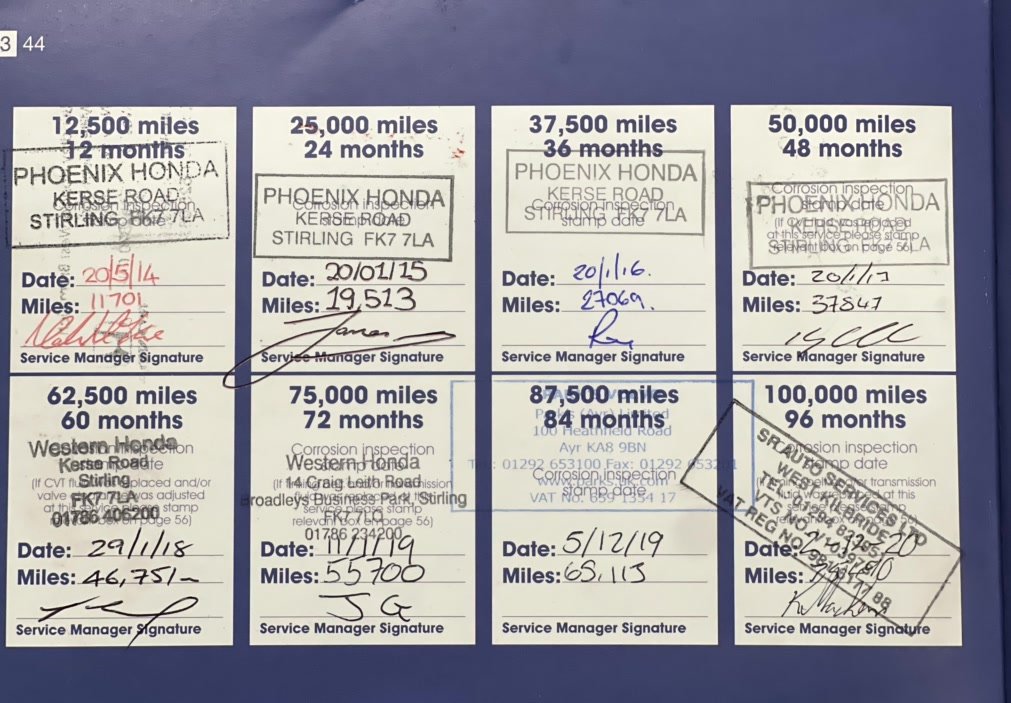 3 44
12,500 miles
12 months
PHOENIX HONDA
KERSE ROAD
Corrosion inspection
STIRLING FK7 7LA
stamp date
Date: 20/5/14
Miles: 11701
Service Manager Signature
25,000 miles
24 months
PHOENIX HONDA
Corrosion inspection
KERSE ROAD
stamp date
STIRLING FK7 7LA
Date: 20/01/15
Miles: 19,513
James
Service Manager Signature
37,500 miles
36 months
PHOENIX HONDA
KERSE ROAD
Corrosion inspection
STIRLING FK7 7LA
stamp date
Date: 20/1/16.
Miles: 27069.
Service Manager Signature
50,000 miles
48 months
Corrosion inspection
stamp date
PHOENIX HONDA
(If CVT fluid was replaced
KERSE ROAD
at this service please stamp
STIRLING FK7 7LA
relevant box on page 56)
Date: 20/1/17
Miles: 37847
Service Manager Signature
62,500 miles
60 months
Western Honda
Corrosion inspection
Kerse Road
stamp date
Stirling
(If CVT fluid was replaced and/or
FK7 7LA
valve clearance was adjusted
at this service please stamp
01786 406200
relevant box on page 56)
Date: 29/1/18
Miles: 46,751
Service Manager Signature
75,000 miles
72 months
Corrosion inspection
Western Honda
stamp date
14 Craig Leith Road
transmission
Broadleys Business Park, Stirling
service please stamp
FK7 7LQ
relevant box on page 56)
01786 234200
Date: 11/1/19
Miles: 55700
JG
Service Manager Signature
87,500 miles
84 months
Parks (Ayr) Limited
100 Heathfield Road
Ayr KA8 9BN
Tel: 01292 653100 Fax: 01292
Corrosion inspection
www.parks.uk.com
stamp date
VAT No.
Date: 5/12/19
Miles: 65,113
Service Manager Signature
100,000 miles
96 months
Corrosion inspection
stamp date
SR AUTO SERVICES LTD
WEST KILBRIDE
TEL 01294
VTS NO
VAT REG NO.
transmission
at this
Date:
Miles:
Service Manager Signature